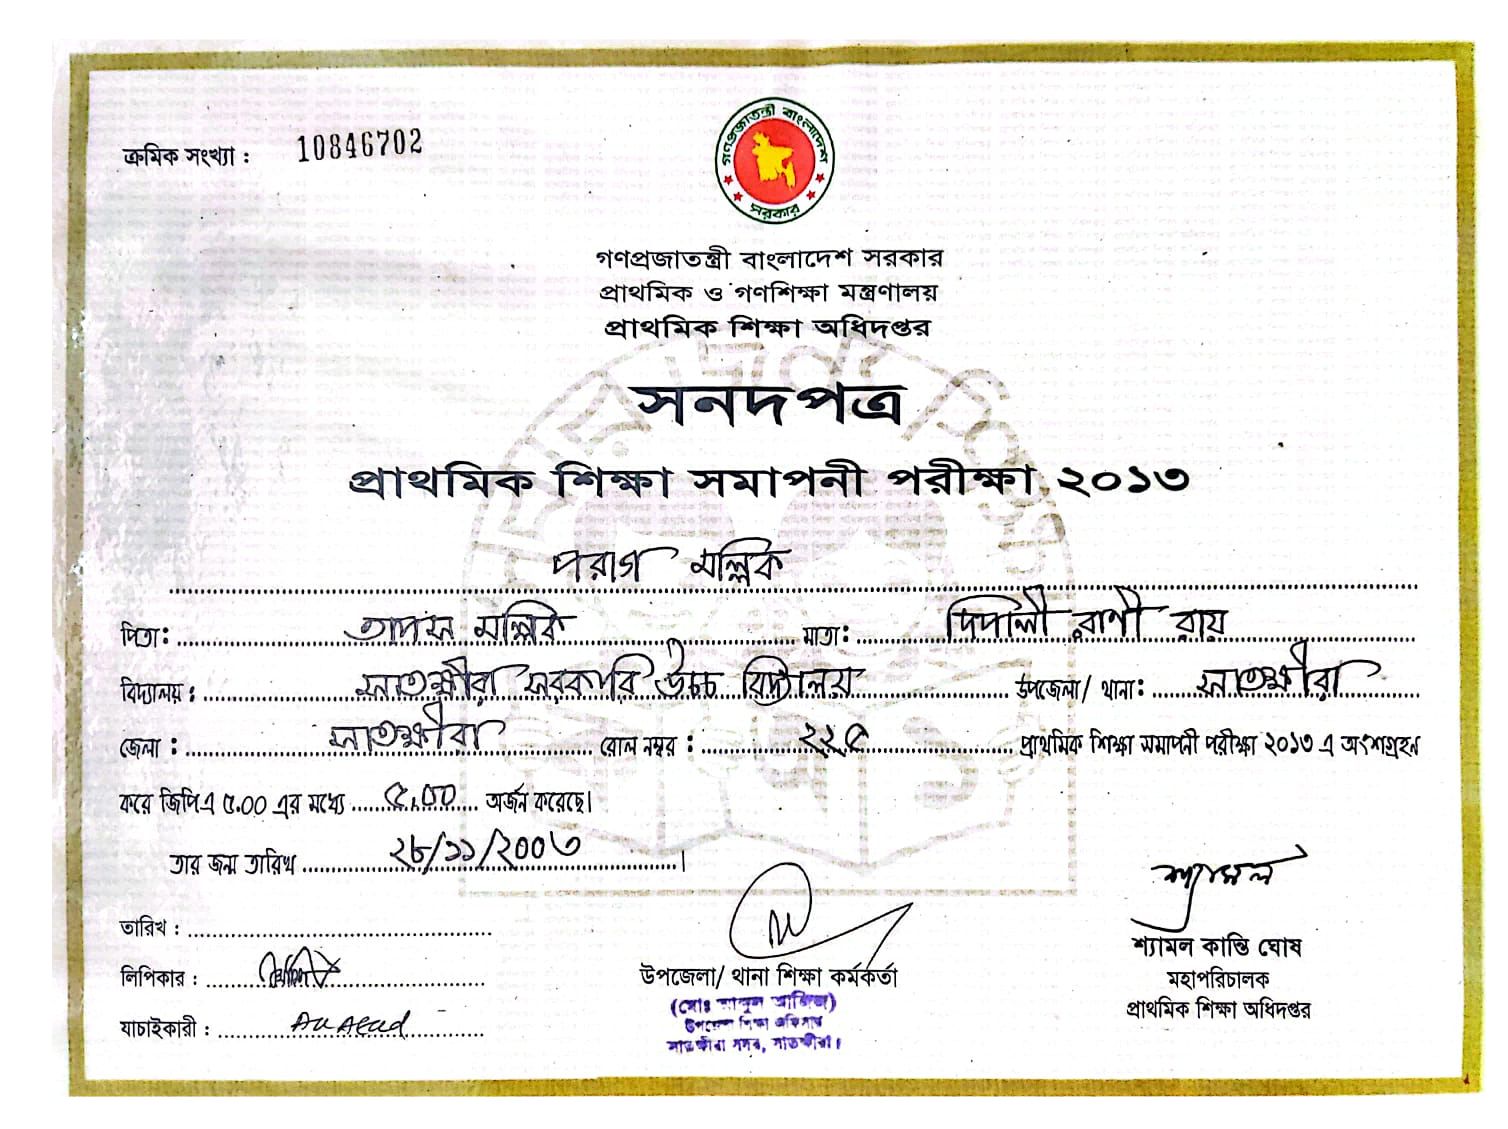 ক্রমিক সংখ্যা : 10846702
গণপ্রজাতন্ত্রী বাংলাদেশ
সরকার
গণপ্রজাতন্ত্রী বাংলাদেশ সরকার
প্রাথমিক ও গণশিক্ষা মন্ত্রণালয়
প্রাথমিক শিক্ষা অধিদপ্তর
সনদপত্র
প্রাথমিক শিক্ষা সমাপনী পরীক্ষা ২০১৩
পরাগ মল্লিক
পিতা: তাপস মল্লিক মাতা: দিপালী রাণী রায়
বিদ্যালয় : সাতক্ষীরা সরকারি উচ্চ বিদ্যালয় উপজেলা/ থানা: সাতক্ষীরা
জেলা : সাতক্ষীরা রোল নম্বর : ২২৫ প্রাথমিক শিক্ষা সমাপনী পরীক্ষা ২০১৩ এ অংশগ্রহন
করে জিপিএ ৫.০০ এর মধ্যে ৫.০০ অর্জন করেছে।
তার জন্ম তারিখ ২৮/১১/২০০৩ ।
তারিখ :
লিপিকার :
যাচাইকারী :
উপজেলা/ থানা শিক্ষা কর্মকর্তা
(মোঃ
উপজেলা শিক্ষা অফিসার
সাতক্ষীরা সদর, সাতক্ষীরা।
শ্যামল
শ্যামল কান্তি ঘোষ
মহাপরিচালক
প্রাথমিক শিক্ষা অধিদপ্তর